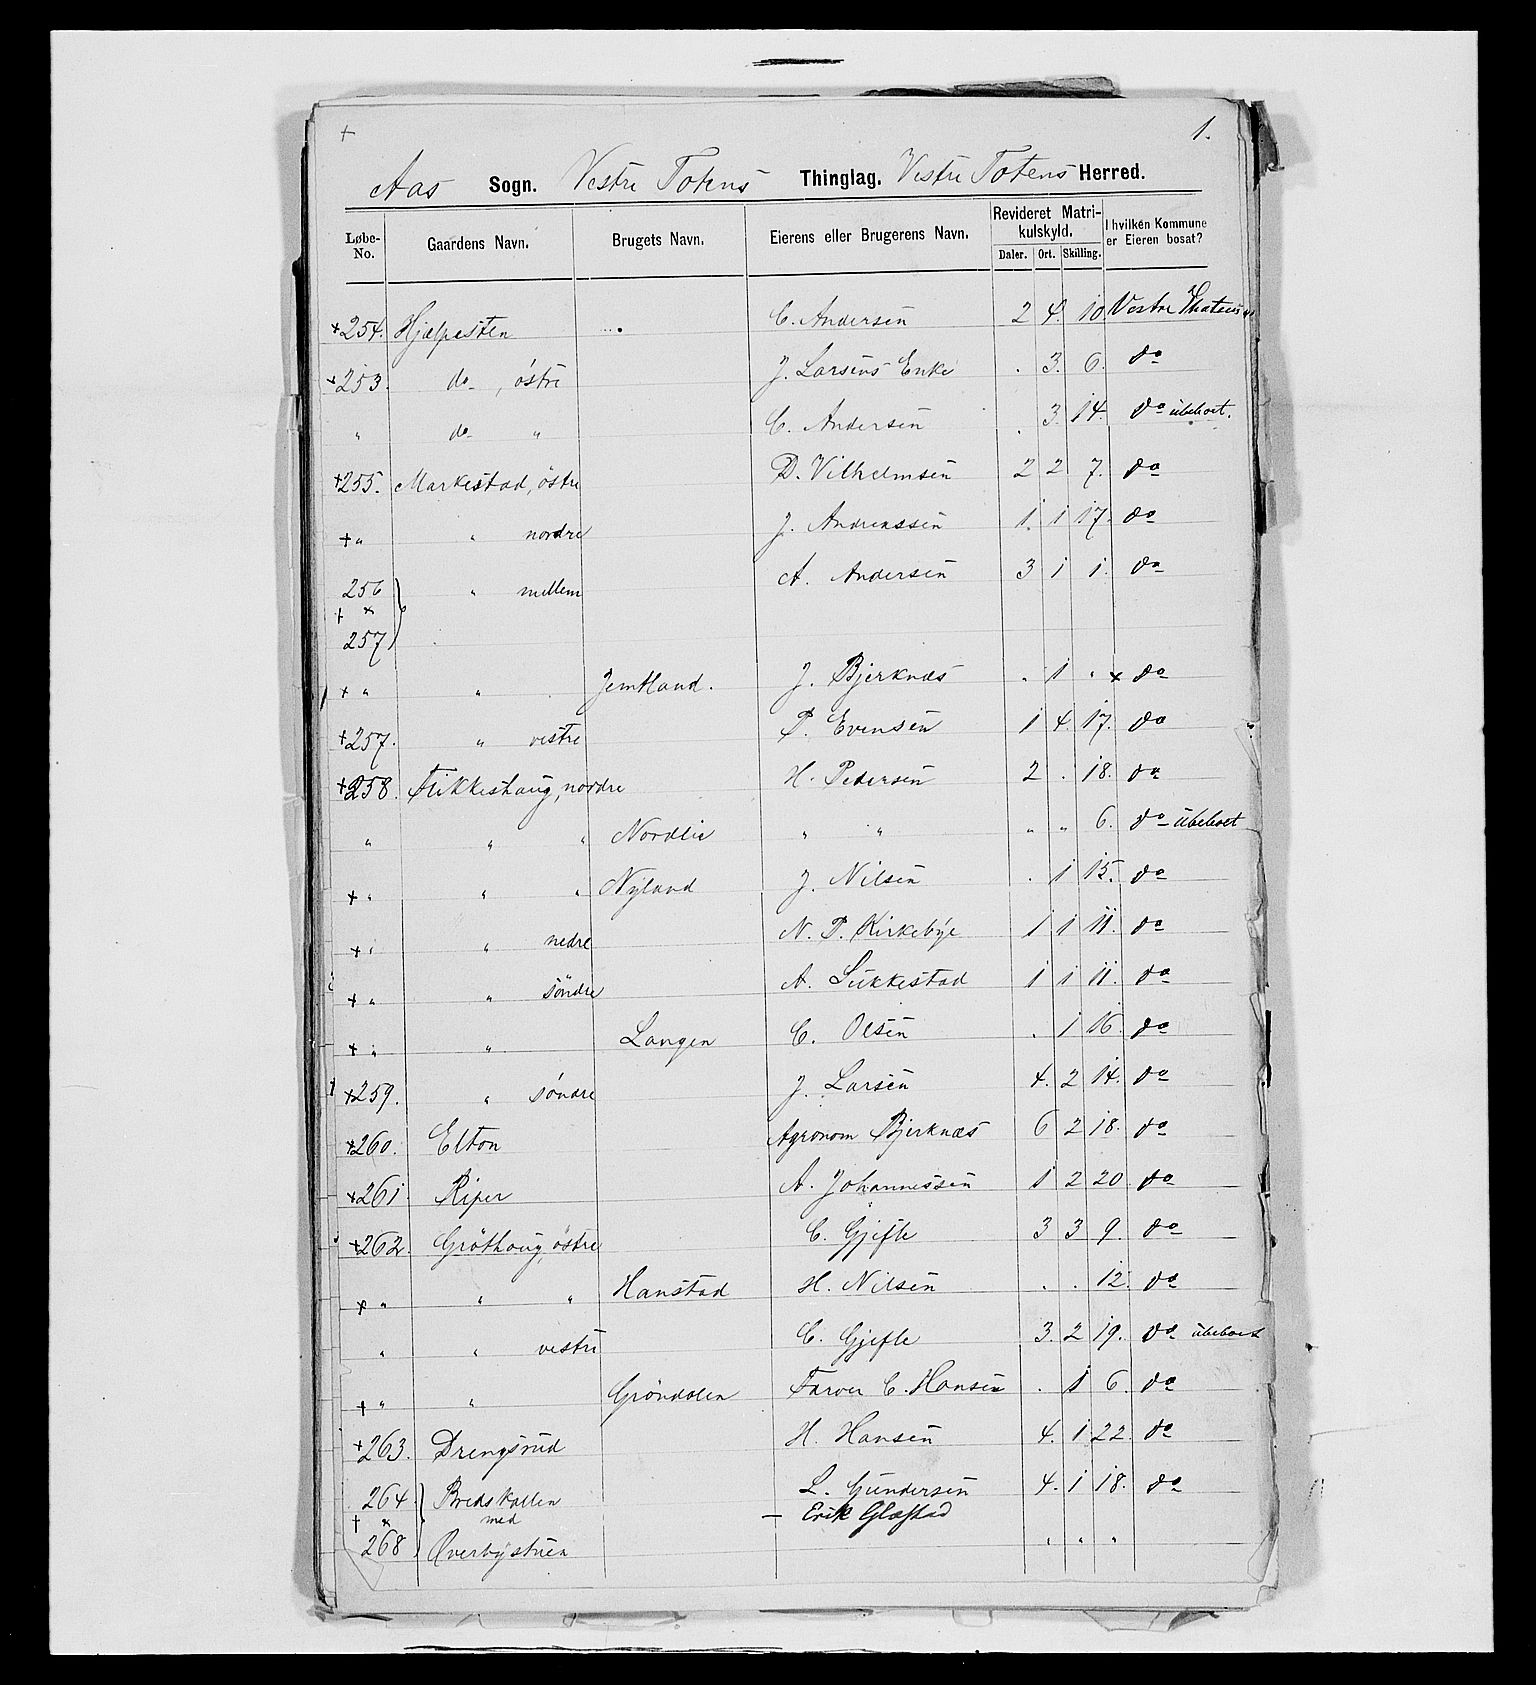 + 1.
Aas Sogn. Vestre Totens Thinglag. Vestre Totens Herred.
Løbe-No. Gaardens Navn. Brugets Navn. Eierens eller Brugerens Navn. Revideret Matrikulskyld. I hvilken Kommune er Eieren bosat?
Daler. Ort. Skilling.
+254. Hjælpesten C. Andersen 2 4. 10. Vestre Thoten
+253. do , östre J. Larsens Enke . 3. 6. do
" do " C. Andersen . 3. 14. do ubeboet.
+255. Markestad, östre D. Vilhelmsen 2 2 7. do
+ " " nordre J. Andreassen 1. 1 17. do
256 " mellem A. Andersen 3 1 1. do
+ x
257
+ " " Jemtland. J. Bjerknæs . 1 . x do
+257. " vestre P. Evensen 1 4. 17. do
+258. Flikkeshaug, nordre H. Pedersen 2 . 18. do
" " " Nordlie " " " " 6. do ubeboet
+ " " " Nyland J. Nilsen . 1 15. do
+ " " nedre N. P. Kirkebye 1 1 11. do
+ " " söndre A. Sukkestad 1 1 11. do
+ " " Langen C. Olsen . 1 16. do
+259. " söndre J. Larsen 4. 2 14. do
+260. Elton Agronom Bjerknæs 6 2 18. do
+261. Riper A. Johannessen 1 2 20 do
+262. Gröthaug, östre C. Gjefle 3 3 9. do
+ " " " Hanstad H. Nilsen . . 12. do
" " vestre C. Gjefle 3. 2 19. do ubeboet
+ " " Gröndalen Farver C. Hansen . 1 6. do
+263. Drengsrud H. Hansen 4. 1 22. do
264 Bredskallen L. Gundersen 4. 1 18. do
+ x med — Erik Glæstad
268 Överbystuen " " "